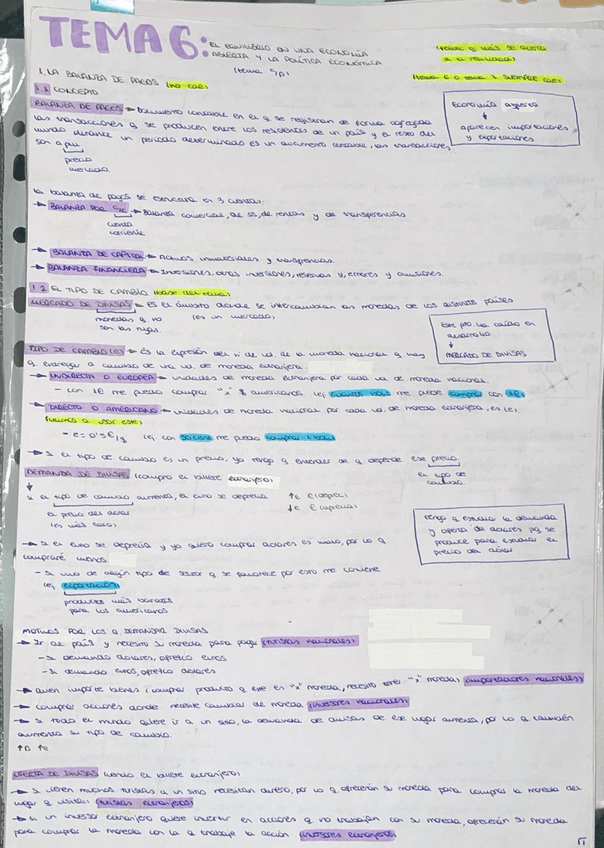 TEMA 6: EL EQUILIBRIO EN UNA ECONOMÍA
ABIERTA Y LA POLÍTICA ECONÓMICA
(tema 5/6)
1. LA BALANZA DE PAGOS (no cae)
1.1 CONCEPTO
BALANZA DE PAGOS → Documento contable en el q se registran de forma agregada
las transacciones q se producen entre los residentes de un país y el resto del
mundo durante un periodo determinado es un documento contable, las transacciones,
son a pm
precio
mercado
Economía abierta
↓
Aparecen importaciones
y exportaciones
La balanza de pagos se estructura en 3 cuentas:
→ BALANZA POR C/C → Balanza comercial, de SS, de rentas y de transferencias
cuenta
corriente
→ BALANZA DE CAPITAL → Activos inmateriales y transferencias.
→ BALANZA FINANCIERA → Inversiones, otras inversiones, reservas y, errores y omisiones.
1.2 EL TIPO DE CAMBIO (base del tema)
MERCADO DE DIVISAS → Es el donde se intercambian las monedas de los distintos países
monedas q no (es un mercado)
son las mías.
Este pto ha caído en
desarrollo
↓
MERCADO DE DIVISAS
TIPO DE CAMBIO (e) → Es la expresión del nº de ud. de la moneda nacional q hay
q entregar a cambio de una ud. de moneda extranjera.
→ INDIRECTA O EUROPEA → unidades de moneda extranjera por cada ud. de moneda nacional.
- con 1€ me puedo comprar "x" $ americanos
→ DIRECTO O AMERICANO → unidades de moneda nacional por cada ud. de moneda extranjera, es (e)
(vamos a usar este)
- e = 0'5 €/$
→ Si el tipo de cambio es un precio, yo tengo q entender de q depende ese precio
el tipo de
cambio
DEMANDA DE DIVISAS (compro el billete extranjero)
Si el tipo de cambio aumenta, el euro se deprecia ↑e €(deprec)
el precio del dólar ↓e €(aprecia)
(es más caro)
→ Si el euro se deprecia y yo quiero comprar dólares es malo, por lo q
compraré menos
Tengo q estudiar la demanda
y oferta de dólares pq se
produce para estudiar el
precio del dólar
productos más baratos
para los americanos
MOTIVOS POR LOS Q DEMANDAR DIVISAS
→ Ir de país y necesito su moneda para pagar (turistas nacionales)
- Si demando dólares, ofrezco euros
- Si demando euros, ofrezco dólares
→ Quien importe bienes (comprar producto q este en "x" moneda, necesito tener "x" moneda) (importadores nacionales)
→ Comprar acciones donde necesite cambiar de moneda (inversores nacionales)
→ Si todo el mundo quiere ir a un sitio, la demanda de divisas de ese lugar aumenta, por lo q también
aumenta su tipo de cambio.
↑D ↑e
OFERTA DE DIVISAS (vendo el billete extranjero)
→ Si vienen muchos turistas a un sitio necesitan dinero, por lo q ofrecerán su moneda para comprar la moneda del
lugar q visitan (turistas extranjeros)
→ Si un inversor extranjero quiere invertir en acciones q no trabajan con su moneda, ofrecerán su moneda
para comprar la moneda con la q trabaje la acción (inversores extranjeros)